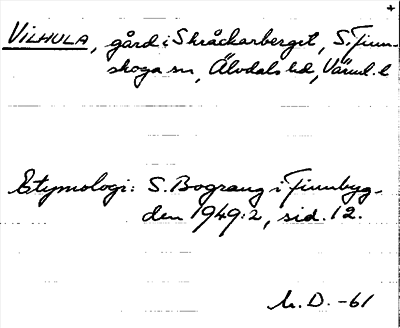 VILHULA, gård i Skråckarberget, S. Finn-
skoga sn, Älvdals hd, Värml. l
Etymologi: S. Bograng i Finnbyg-
den 1949:2, sid. 12.
M. D. -61